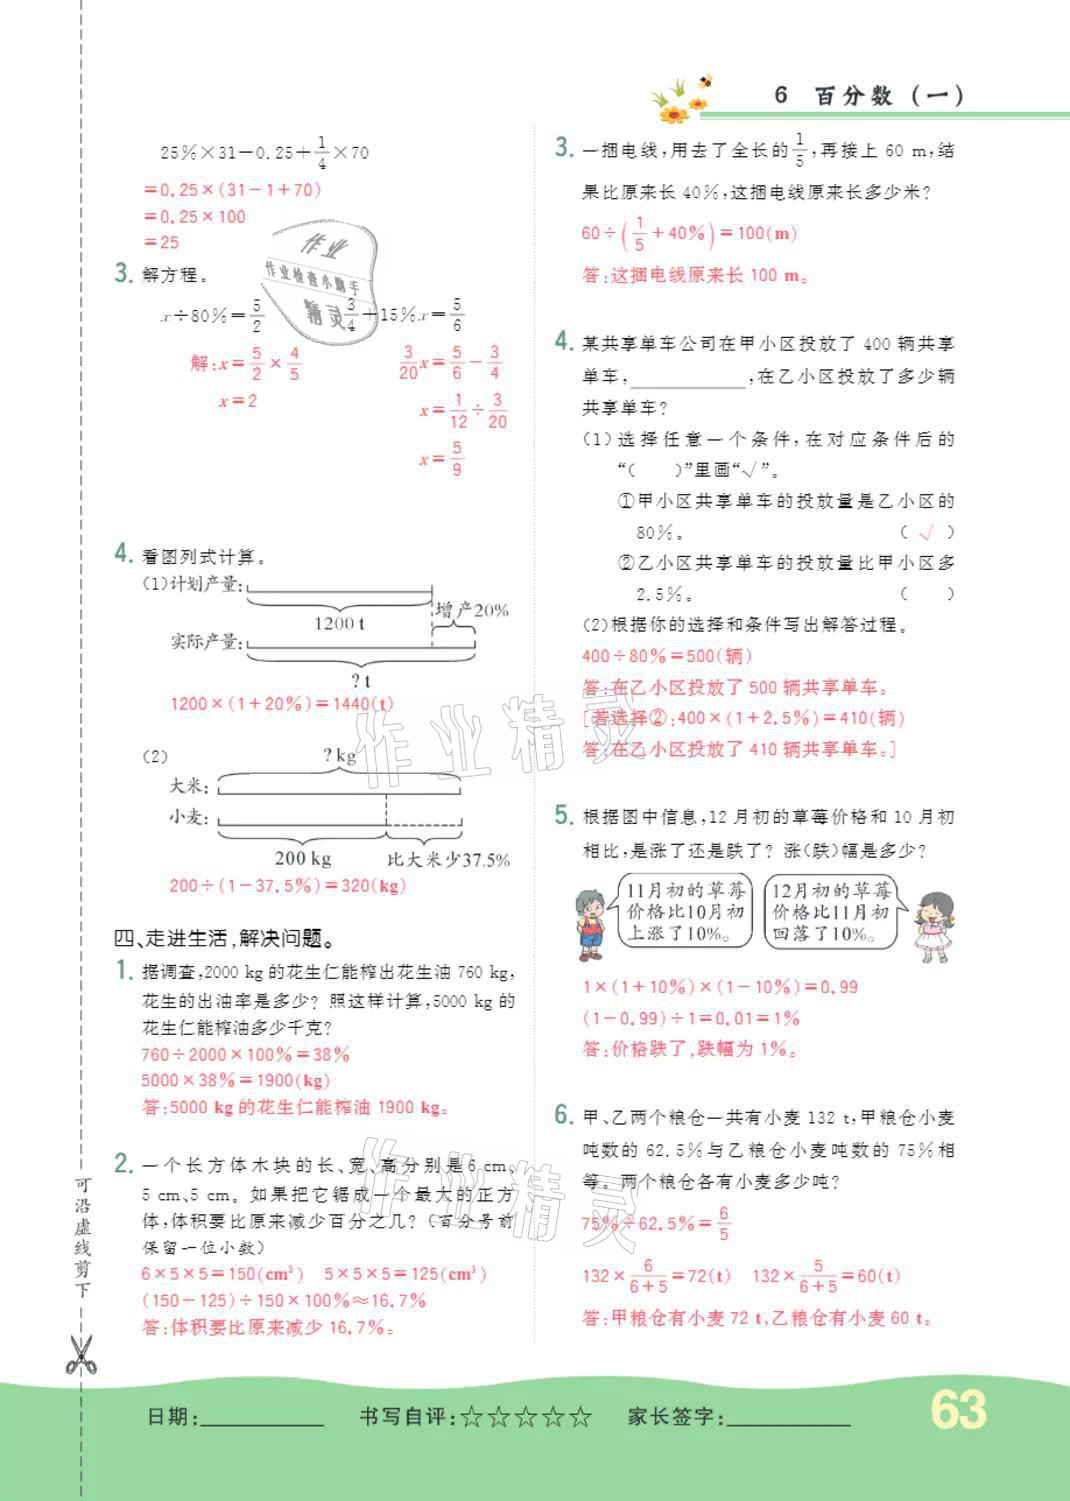 6 百分数(一)
25%×31-0.25+1/4×70
=0.25×(31-1+70)
=0.25×100
=25
3. 解方程。
x÷80%=5/2 3/4+15%x=5/6
解:x=5/2×4/5 3/20x=5/6-3/4
x=2 x=1/12÷3/20
x=5/9
4. 看图列式计算。
(1)计划产量:
1200 t
增产20%
实际产量:
? t
1200×(1+20%)=1440(t)
(2) ? kg
大米:
小麦:
200 kg 比大米少37.5%
200÷(1-37.5%)=320(kg)
四、走进生活,解决问题。
1. 据调查,2000 kg 的花生仁能榨出花生油 760 kg,
花生的出油率是多少? 照这样计算,5000 kg 的
花生仁能榨油多少千克?
760÷2000×100%=38%
5000×38%=1900(kg)
答:5000 kg 的花生仁能榨油 1900 kg。
2. 一个长方体木块的长、宽、高分别是 6 cm、
5 cm、5 cm。如果把它锯成一个最大的正方
体,体积要比原来减少百分之几?(百分号前
保留一位小数)
6×5×5=150(cm³) 5×5×5=125(cm³)
(150-125)÷150×100%≈16.7%
答:体积要比原来减少 16.7%。
3. 一捆电线,用去了全长的1/5,再接上 60 m,结
果比原来长 40%,这捆电线原来长多少米?
60÷(1/5+40%)=100(m)
答:这捆电线原来长 100 m。
4. 某共享单车公司在甲小区投放了 400 辆共享
单车,__________,在乙小区投放了多少辆
共享单车?
(1)选择任意一个条件,在对应条件后的
“( )”里画“√”。
①甲小区共享单车的投放量是乙小区的
80%。 ( √ )
②乙小区共享单车的投放量比甲小区多
2.5%。 ( )
(2)根据你的选择和条件写出解答过程。
400÷80%=500(辆)
答:在乙小区投放了 500 辆共享单车。
[若选择②:400×(1+2.5%)=410(辆)
答:在乙小区投放了 410 辆共享单车。]
5. 根据图中信息,12 月初的草莓价格和 10 月初
相比,是涨了还是跌了? 涨(跌)幅是多少?
11月初的草莓
价格比10月初
上涨了10%。
12月初的草莓
价格比11月初
回落了10%。
1×(1+10%)×(1-10%)=0.99
(1-0.99)÷1=0.01=1%
答:价格跌了,跌幅为 1%。
6. 甲、乙两个粮仓一共有小麦 132 t,甲粮仓小麦
吨数的 62.5%与乙粮仓小麦吨数的 75%相
等。两个粮仓各有小麦多少吨?
75%÷62.5%=6/5
132×6/(6+5)=72(t) 132×5/(6+5)=60(t)
答:甲粮仓有小麦 72 t,乙粮仓有小麦 60 t。
可沿虚线剪下
作业
作业检查小助手
精灵
作业精灵
作业精灵
日期:__________ 书写自评:☆☆☆☆☆ 家长签字:__________
63